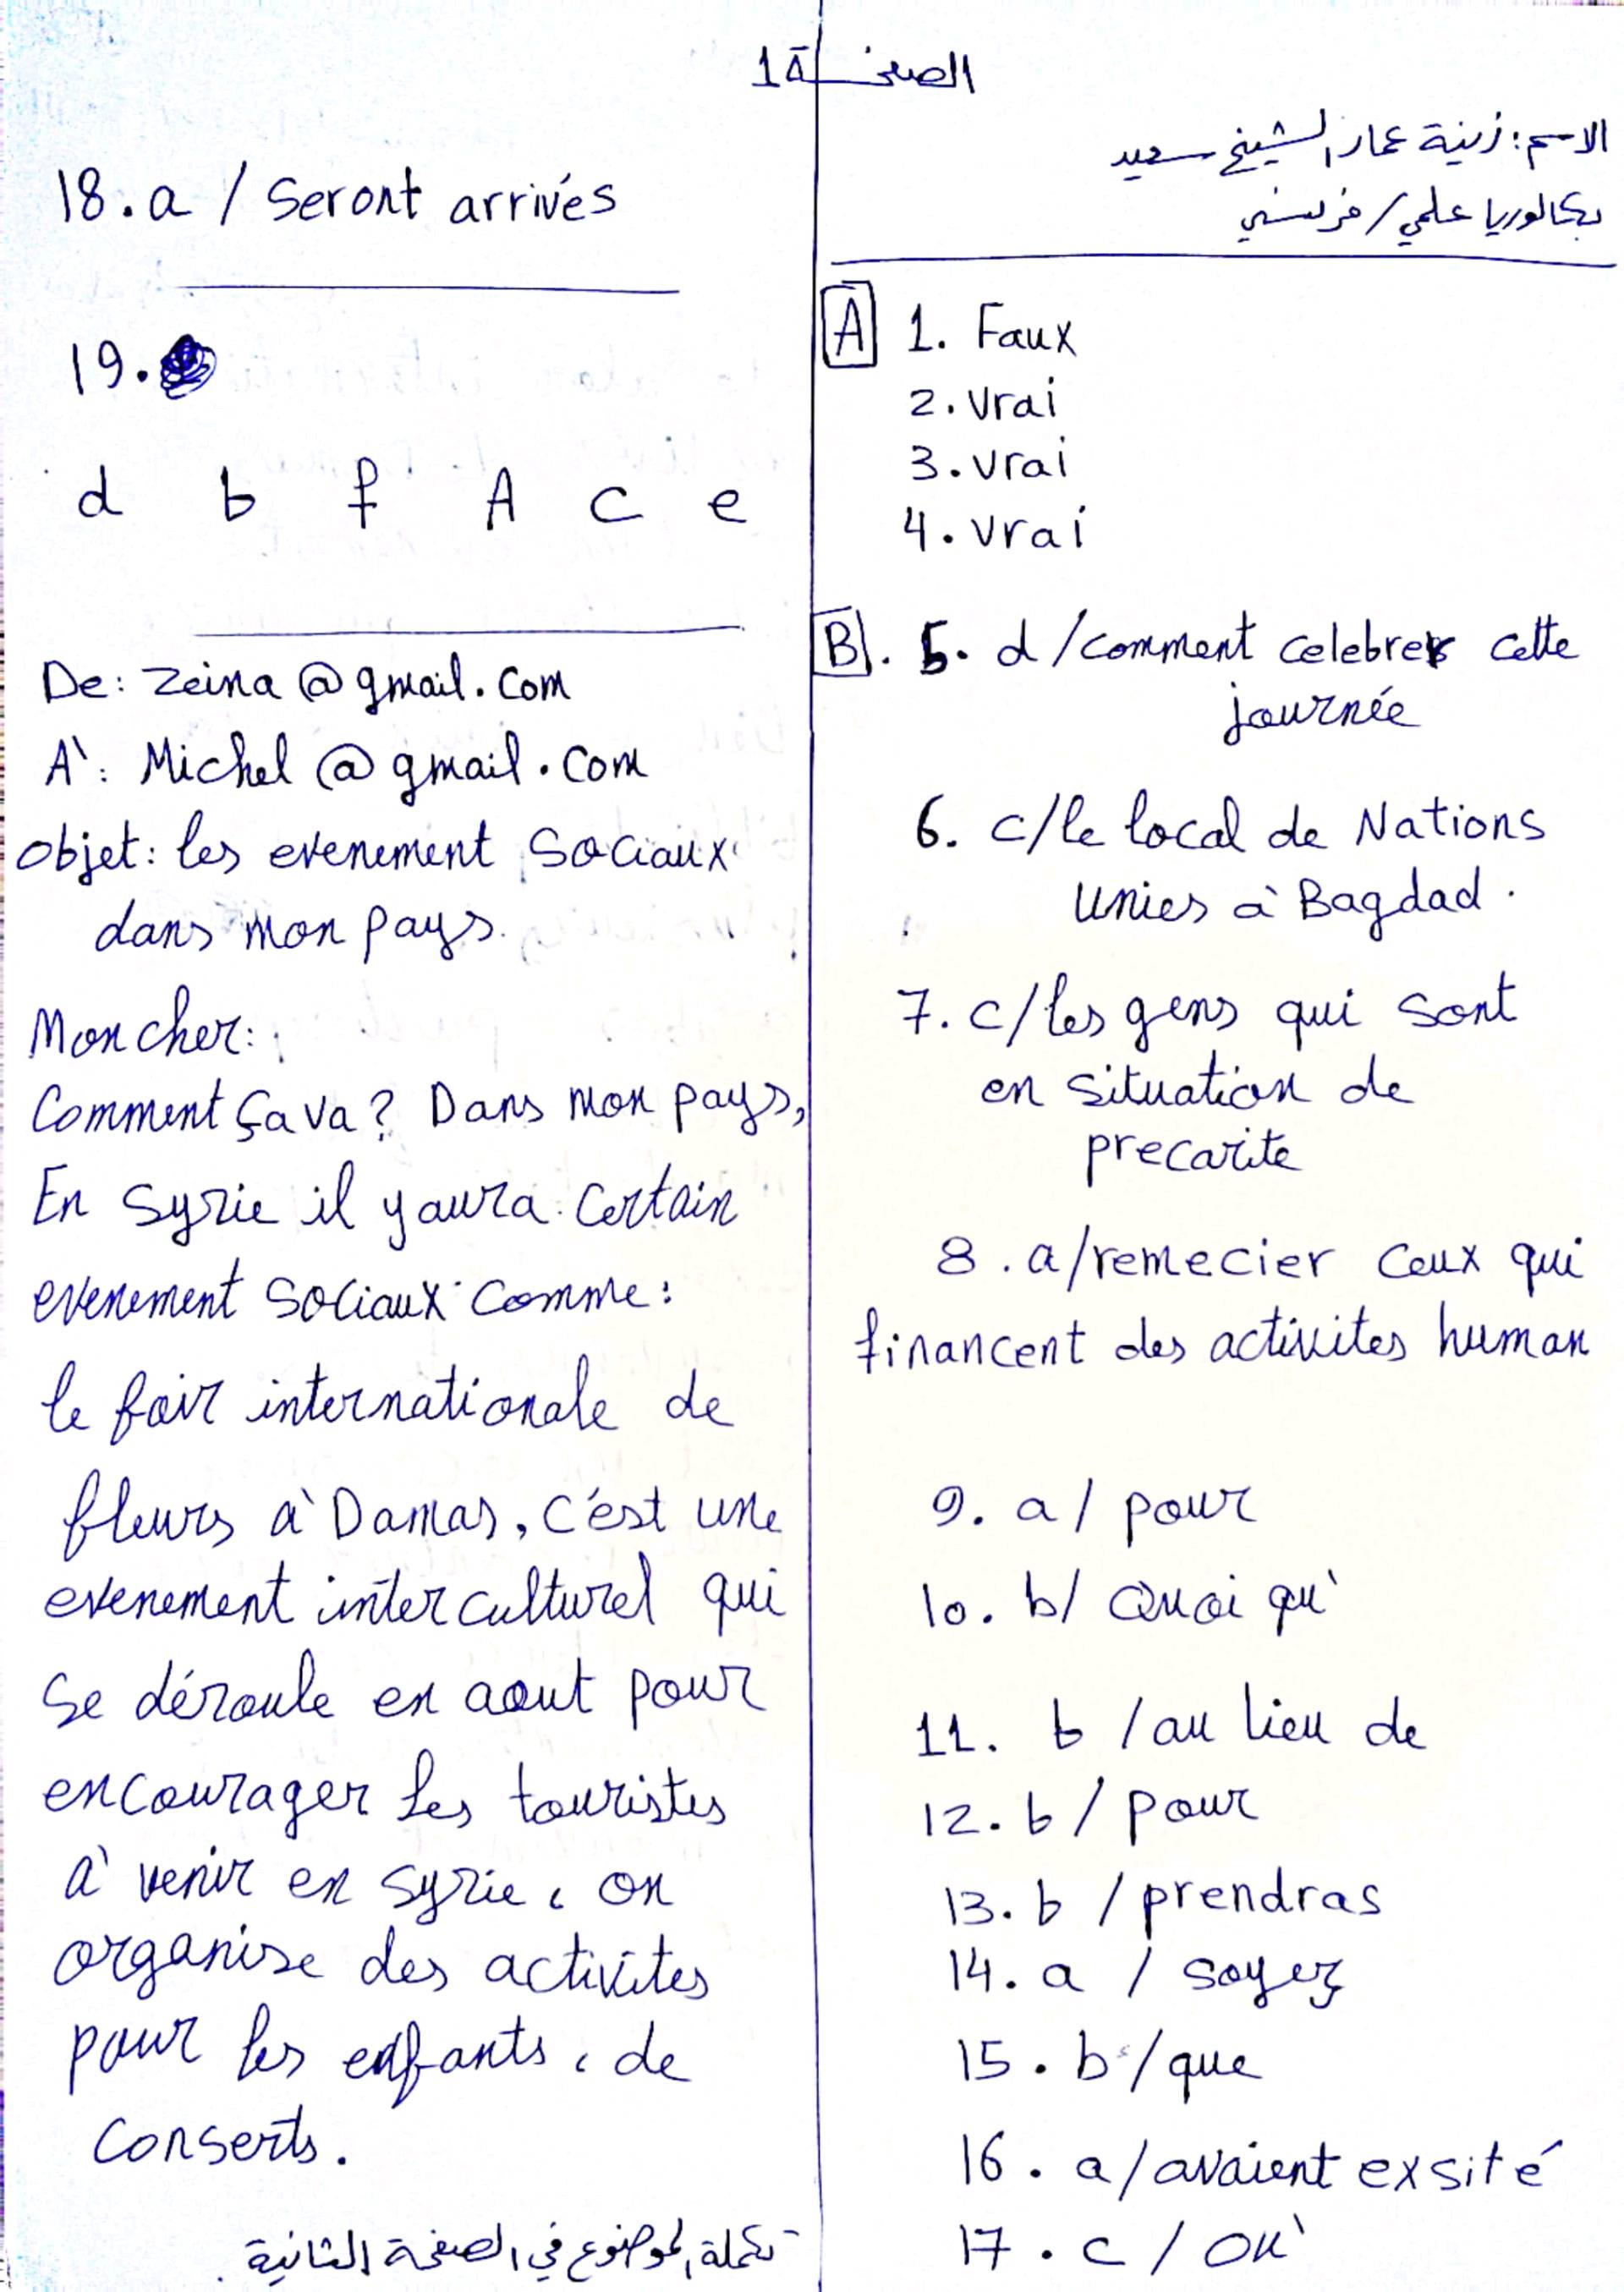 الصفحة 1
الاسم: زينة عمار الشيخ سعيد
بكالوريا علمي/فرنسي
A 1. Faux
2. vrai
3. vrai
4. vrai
B. 5. d /comment celebrer cette
journée
6. c/le local de Nations
Unies à Bagdad.
7. c/les gens qui sont
en situation de
precarite
8. a/remecier ceux qui
financent des activites human
9. a/ pour
10. b/ Quoi qu'
11. b /au lieu de
12. b/ pour
13. b /prendras
14. a / soyez
15. b /que
16. a/avaient exsité
17. c / Où
18. a / Seront arrivés
19.
d b f A c e
De: Zeina@gmail.com
À: Michel@gmail.com
objet: les evenement Sociaux
dans mon pays.
Mon cher:
Comment ça va? Dans mon pays,
En Syrie il y aura certain
evenement Sociaux comme:
le foir internationale de
fleurs à Damas, C'est une
evenement interculturel qui
Se déroule en aout pour
encourager les touristes
à venir en Syrie, on
organise des activites
pour les enfants, de
Conserts.
تكملة الموضوع في الصفحة الثانية.